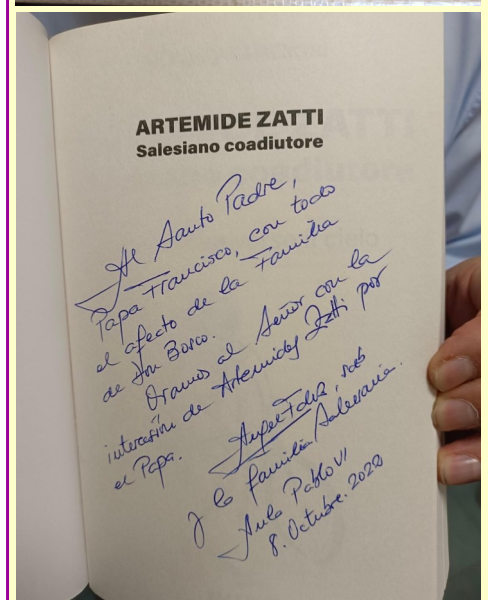 ARTEMIDE ZATTI
Salesiano coadiutore
Al Santo Padre,
Papa Francisco, con todo
el afecto de la Familia
de Don Bosco.
Oramos al Señor con la
intercesión de Artemides Zatti por
el Papa.
Angel Fdez, sdb
y la familia Salesiana.
Aula Pablo VI
8. Octubre. 2022